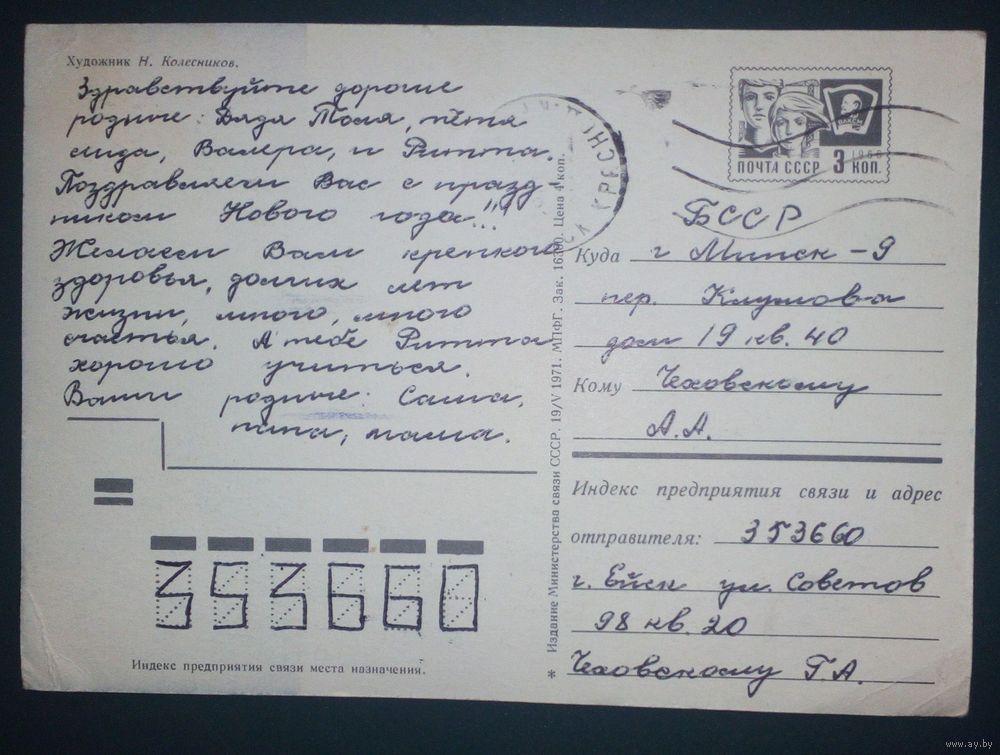 Художник Н. Колесников.
Здравствуйте дорогие
родные: Дядя Толя, тётя
Лида, Валера, и Ритта.
Поздравляем Вас с празд
ником Нового года!!!
Желаем Вам крепкого
здоровья, долгих лет
жизни, много, много
счастья. А тебе Ритта
хорошо учиться.
Ваши родные: Саша,
папа, мама.
353660
Индекс предприятия связи места назначения.
* Издание Министерства связи СССР. 19/V 1971. МПФГ. Зак. 16390. Цена 4 коп.
ВЛКСМ
1966
ПОЧТА СССР 3 КОП.
БССР
Куда г Минск-9
пер. Клумова
дом 19 кв. 40
Кому Чеховскому
А.А.
Индекс предприятия связи и адрес
отправителя: 353660
г. Ейск ул. Советов
98 кв. 20
Чеховскому Г.А.
www.ay.by